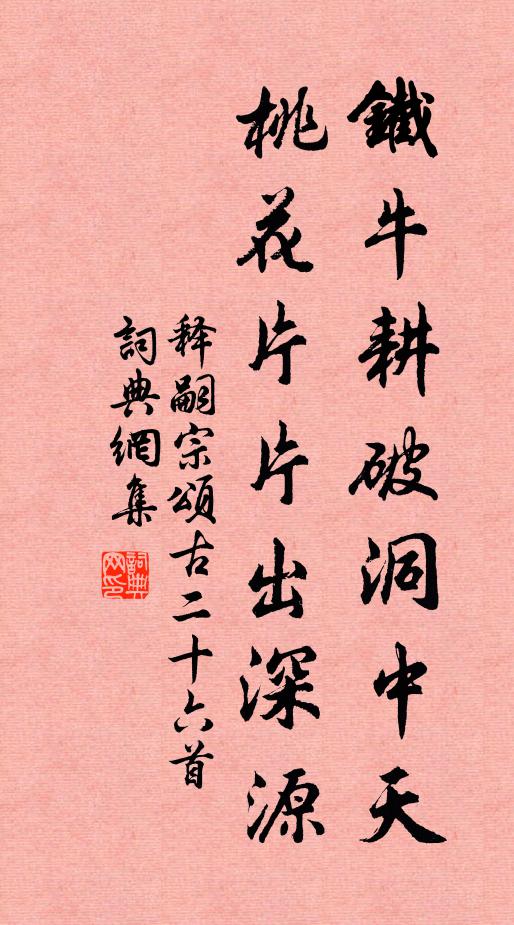 鐵牛耕破洞中天
桃花片片出深源
释嗣宗頌古二十六首
詞典網集
詞典網印